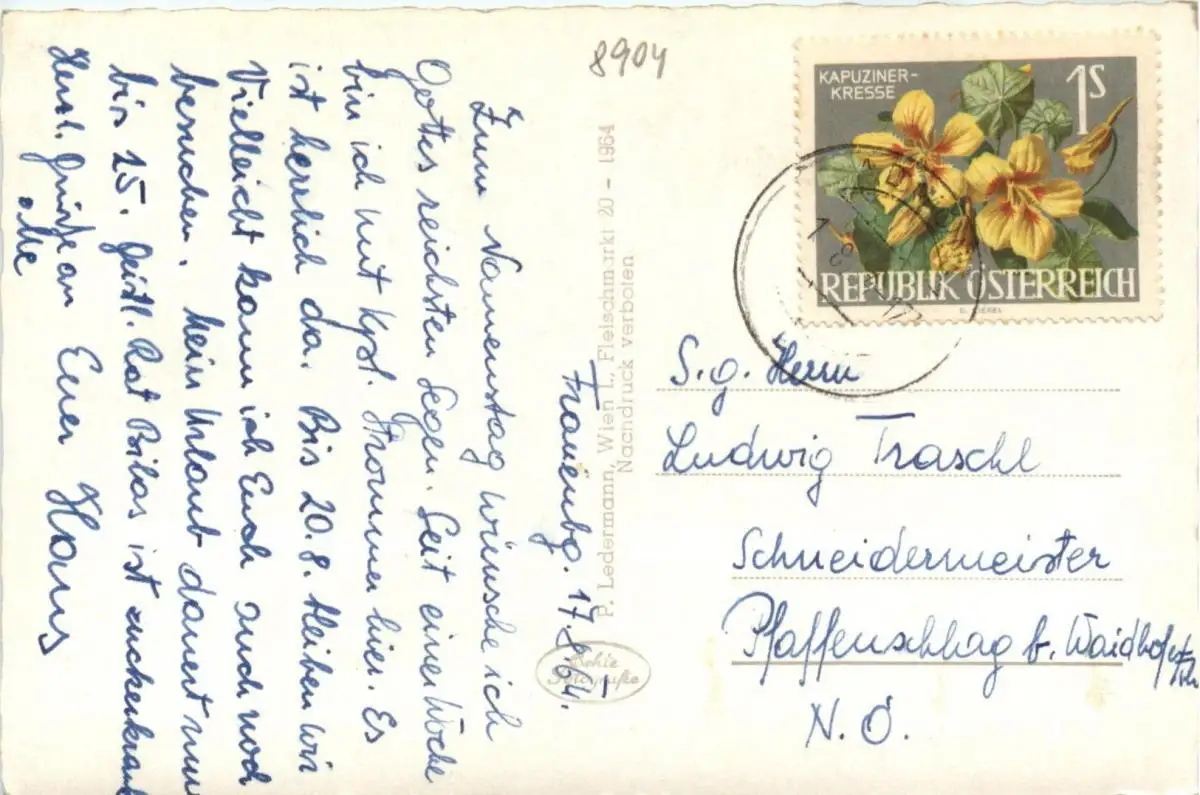 8904
Frauenbg. 17.8.64.
Zum Namenstag wünsche ich
Gottes reichsten Segen. Seit einer Woche
bin ich mit Kpl. Strommer hier. Es
ist herrlich da. Bis 20.8. bleiben wir
Vielleicht kann ich Euch auch noch
besuchen. Mein Urlaub dauert nun
bis 25. Geistl. Rat Bilos ist zuckerkrank
Herzl. Grüße an Euer Hans
alle
P. Ledermann, Wien I., Fleischmarkt 20 - 1964
Nachdruck verboten
Echte
Fotografie
KAPUZINER-
KRESSE
1S
REPUBLIK ÖSTERREICH
S. g. Herrn
Ludwig Traschl
Schneidermeister
Pfaffenschlag b. Waidhofen
N. Ö.